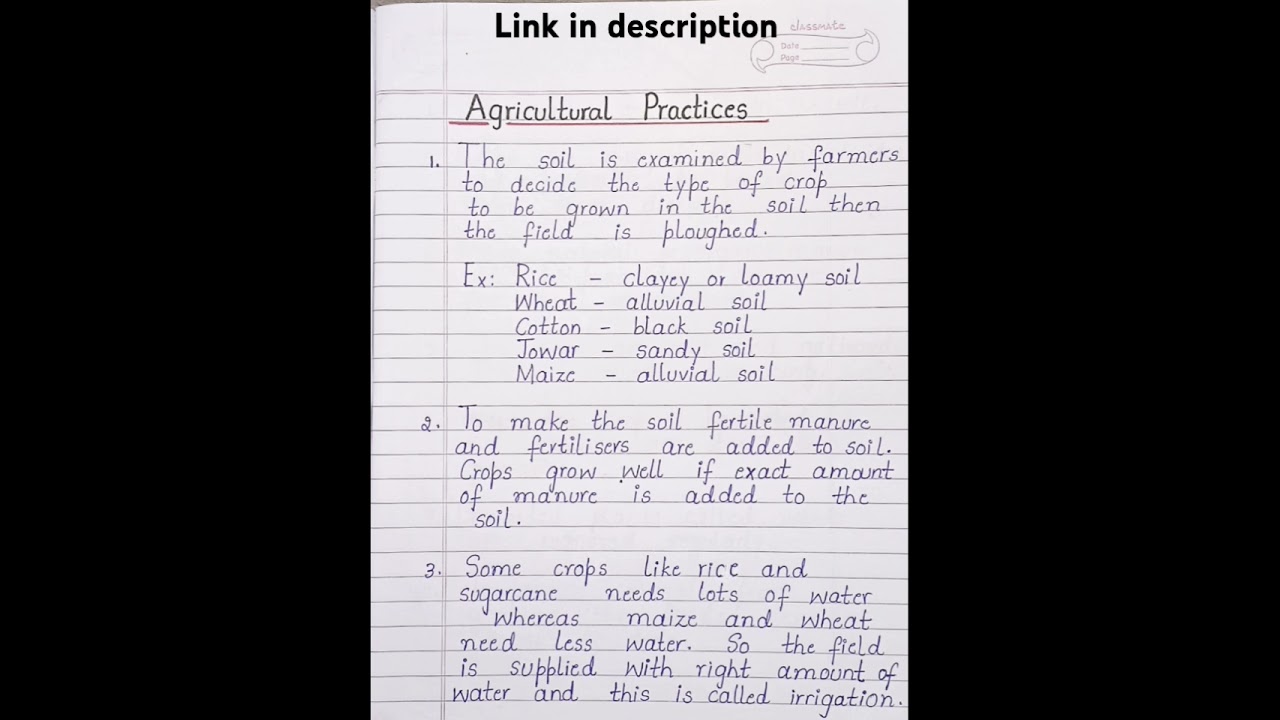 Link in description
classmate
Date
Page
Agricultural Practices
1. The soil is examined by farmers
to decide the type of crop
to be grown in the soil then
the field is ploughed.
Ex: Rice - clayey or loamy soil
Wheat - alluvial soil
Cotton - black soil
Jowar - sandy soil
Maize - alluvial soil
2. To make the soil fertile manure
and fertilisers are added to soil.
Crops grow well if exact amount
of manure is added to the
soil.
3. Some crops like rice and
sugarcane needs lots of water
whereas maize and wheat
need less water. So the field
is supplied with right amount of
water and this is called irrigation.